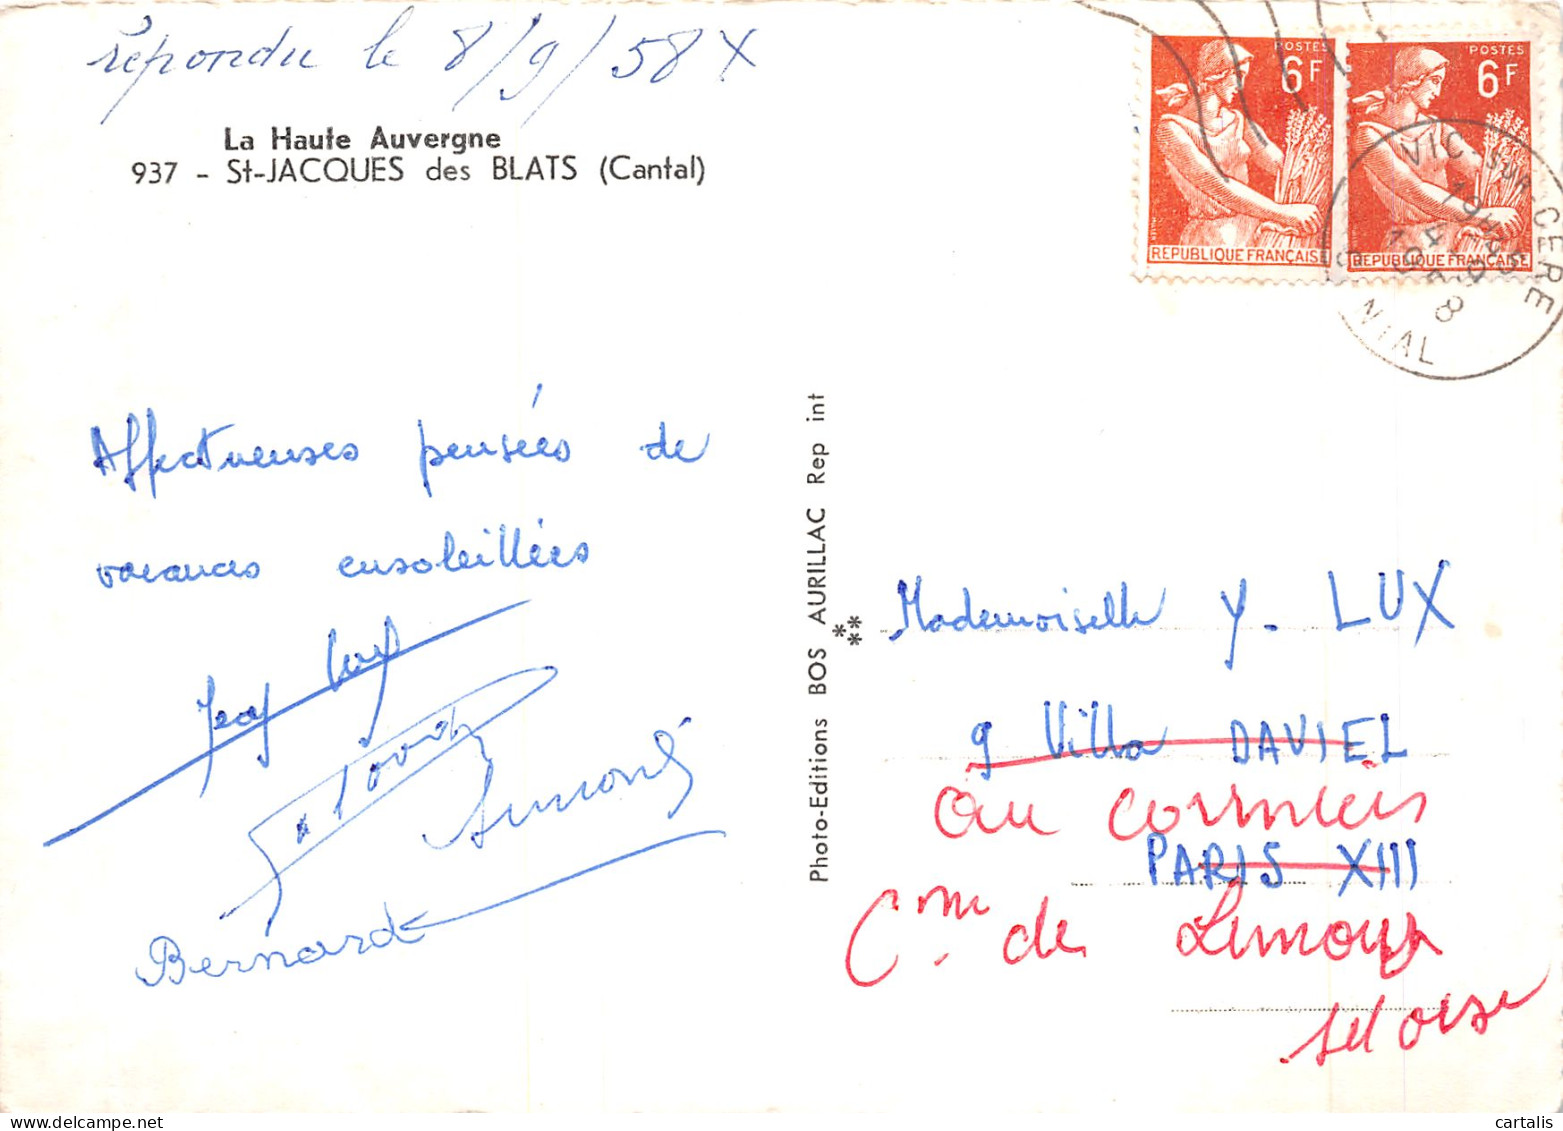 répondu le 8/9/58 X
La Haute Auvergne
937 - St-JACQUES des BLATS (Cantal)
POSTES
6F
REPUBLIQUE FRANÇAISE
POSTES
6F
REPUBLIQUE FRANÇAISE
VIC-SUR-CERE
19H
Affectueuses pensées de
vacances ensoleillées
Bernard
Photo-Editions BOS AURILLAC Rep int
Mademoiselle Y. LUX
9 Villa DAVIEL
au
PARIS XIII
de Limours
set oise
cartalis